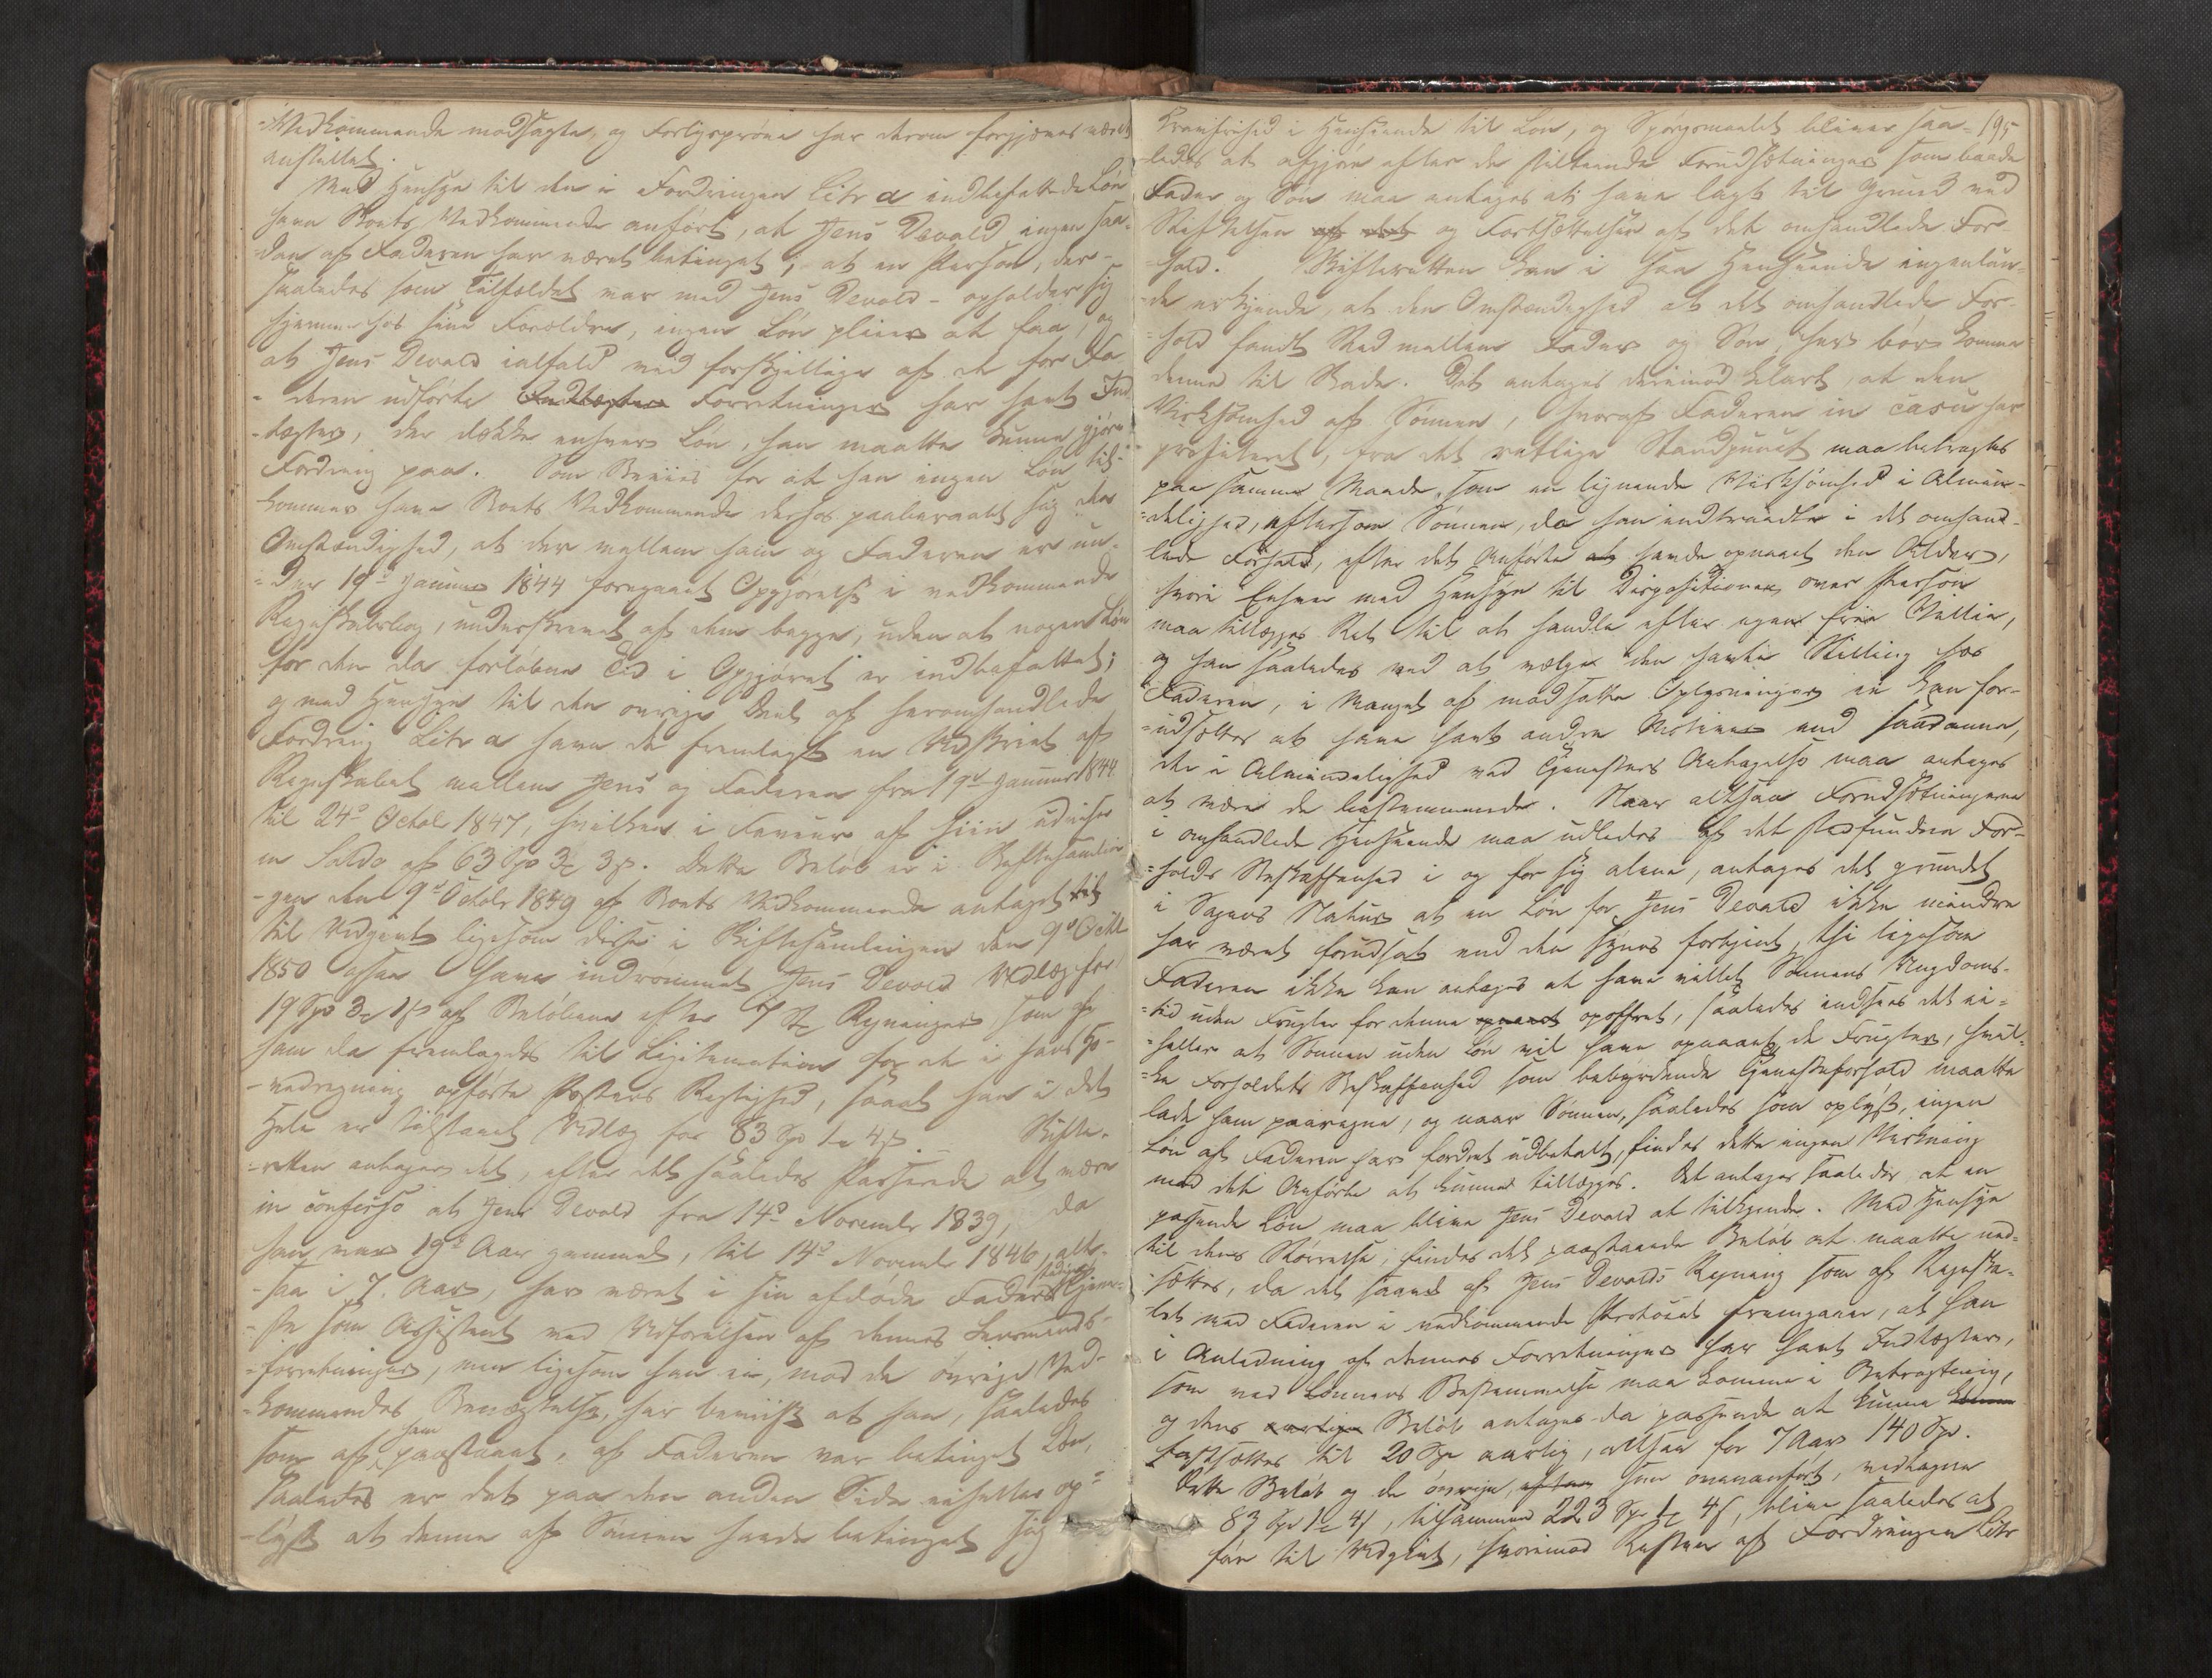 -Vedkommende modsagte, og Forligsprøve har derom forgjæves været
anstillet.
Med Hensyn til den i Fordringen Litr a indbefattede Løn
have Boets Vedkommende anført, at Jens Devold ingen saa-
dan af Faderen har været betinget; at en Person, der-
saaledes som Tilfældet var med Jens Devold - opholder sig
hjemme hos sine Forældre, ingen Løn pleier at faa, og
at Jens Devold ialfald ved forskjellige af de for Fa-
-deren udførte Indtægter Forretninger har havt Ind-
-tægter, der dække enhver Løn, han maatte kunne gjøre
Fordring paa. Som Beviis for at han ingen Løn til-
kommer have Boets Vedkommende derhos paaberaabt sig den
Omstændighed, at der mellem ham og Faderen er un-
=der 19de Januar 1844 foregaaet Opgjørelse i vedkommende
Regnskabsbog, underskrevet af dem begge, uden at nogen Løn
for den da forløbne Tid i Opgjøret er indbefattet;
og med Hensyn til den øvrige Deel af heromhandlede
Fordring Litr a have de fremlagt en Udskrivt af
Regnskabet mellem Jens og Faderen fra 19de Januar 1844
til 24de Octobr 1847, hvilken i Faveur af hiin udviser
en Saldo af 63 Spd 3 Ort 3 s. Dette Beløb er i Skiftesamlin-
-gen den 9de Octobr 1849 af Boets Vedkommende antaget til
til Udgivt ligesom disse i Skiftesamlingen den 9de Octbr
1850 ogsaa have indrømmet Jens Devold Udlæg for
19 Spd 3 Ort 1 s af Beløbene efter 7 St Regninger, som af
ham da fremlagdes til Legitimation for de i hans Ho-
-vedregning opførte Posters Rigtighed, saaat han i det
Hele er tilstaaet Udlæg for 83 Spd 1 Ort 4 s. Skifte-
-retten antager det, efter det saaledes Passerede at være
in confesso at Jens Devold fra 14de Novembr 1839, da
han var 19de Aar gammel, til 14de Novembr 1846, alt-
-saa i 7. Aar, har været i sin afdøde Faders stadige Tjene-
-ste som Assistent ved Udførelsen af dennes Lensmands-
-forretninger, men ligesom han ei, mod de øvrige Ved-
-kommendes Benægtelse, har beviist at han, saaledes
som af ham paastaaet, af Faderen var betinget Løn,
saaledes er det paa den anden Side eiheller op-
-lyst at denne af Sønnen havde betinget sig
195
Kravfrihed i Henseende til Løn, og Spørgsmaalet bliver saa-
-ledes at afgjøre efter de stiltiende Forudsætninger som baade
Fader og Søn maa antages at have lagt til Grund ved
Stiftelsen af det og Fortsættelsen af det omhandlede For-
-hold. Skifteretten kan i saa Henseende ingenlun-
-de erkjende, at den Omstændighed at det omhandlede For-
-hold fandt Sted mellem Fader og Søn, her bør komme
denne til Skade. Det antages derimod klart, at den
Virksomhed af Sønnen, hvoraf Faderen in casu har
profiteret, fra det retlige Standpunct maa betragtes
paa samme Maade, som en lignende Virksomhed i Almin-
-delighed, eftersom Sønnen, da han indtraadte i det omhand-
lede Forhold, efter det Anførte at havde opnaaet den Alder,
hvori Enhver med Hensyn til Dispositionen over Person
maa tillægges Ret til at handle efter egen frie Villie,
og han saaledes ved at vælge den havte Stilling hos
Faderen, i Mangel af modsatte Oplysninger ei kan for-
-udsættes at have havt andre Motiver end saadanne,
der i Almindelighed ved Tjenesters Antagelse maa antages
at være de bestemmende. Naar altsaa Forudsætningerne
i omhandlede Henseende maa udledes af det stedfundne For-
-holds Beskaffenhed i og for sig alene, antages det grundet
i Sagens Natur at en Løn for Jens Devold ikke mindre
har været forudsat end den synes fortjent, thi ligesom
Faderen ikke kan antages at have villet Sønnens Ungdoms-
-tid uden Frugter for denne opnaaet opoffret, saaledes indsees det ei-
-heller at Sønnen uden Løn vil have opnaaet de Frugter, hvil-
-ke Forholdets Beskaffenhed som bebyrdende Tjenesteforhold maatte
lade ham paaregne, og naar Sønnen, saaledes som oplyst, ingen
Løn af Faderen har fordret udbetalt, findes dette ingen Virkning
mod det Anførte at kunne tillægges. Det antages saaledes at en
passende Løn maa blive Jens Devold at tilkjende. Med Hensyn
til dens Størrelse, findes det paastaaede Beløb at maatte ned-
sættes, da det saavel af Jens Devolds Regning som af Regnska-
-bet med Faderen i vedkommende Protocol fremgaaer, at han
i Anledning af dennes Forretninger har havt Indtægter,
som ved Lønnens Bestemmelse maa komme i Betragtning,
og dens Beløb antages da passende at kunne
fastsættes til 20 Spd aarlig, altsaa for 7 Aar 140 Spd.
Dette Beløb og de øvrige, som ovenanført, vedtagne
83 Spd 1 Ort 4 s, tilsammen 223 Spd 1 Ort 4 s, blive saaledes at
føre til Udgivt, hvorimod Resten af Fordringen Litr